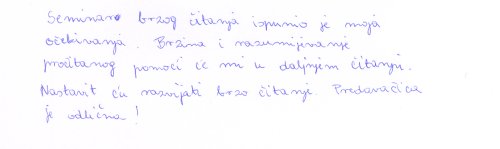 Seminar brzog čitanja ispunio je moja
očekivanja. Brzina i razumijevanje
pročitanog pomoći će mi u daljnjem čitanju.
Nastavit ću razvijati brzo čitanje. Predavačica
je odlična!